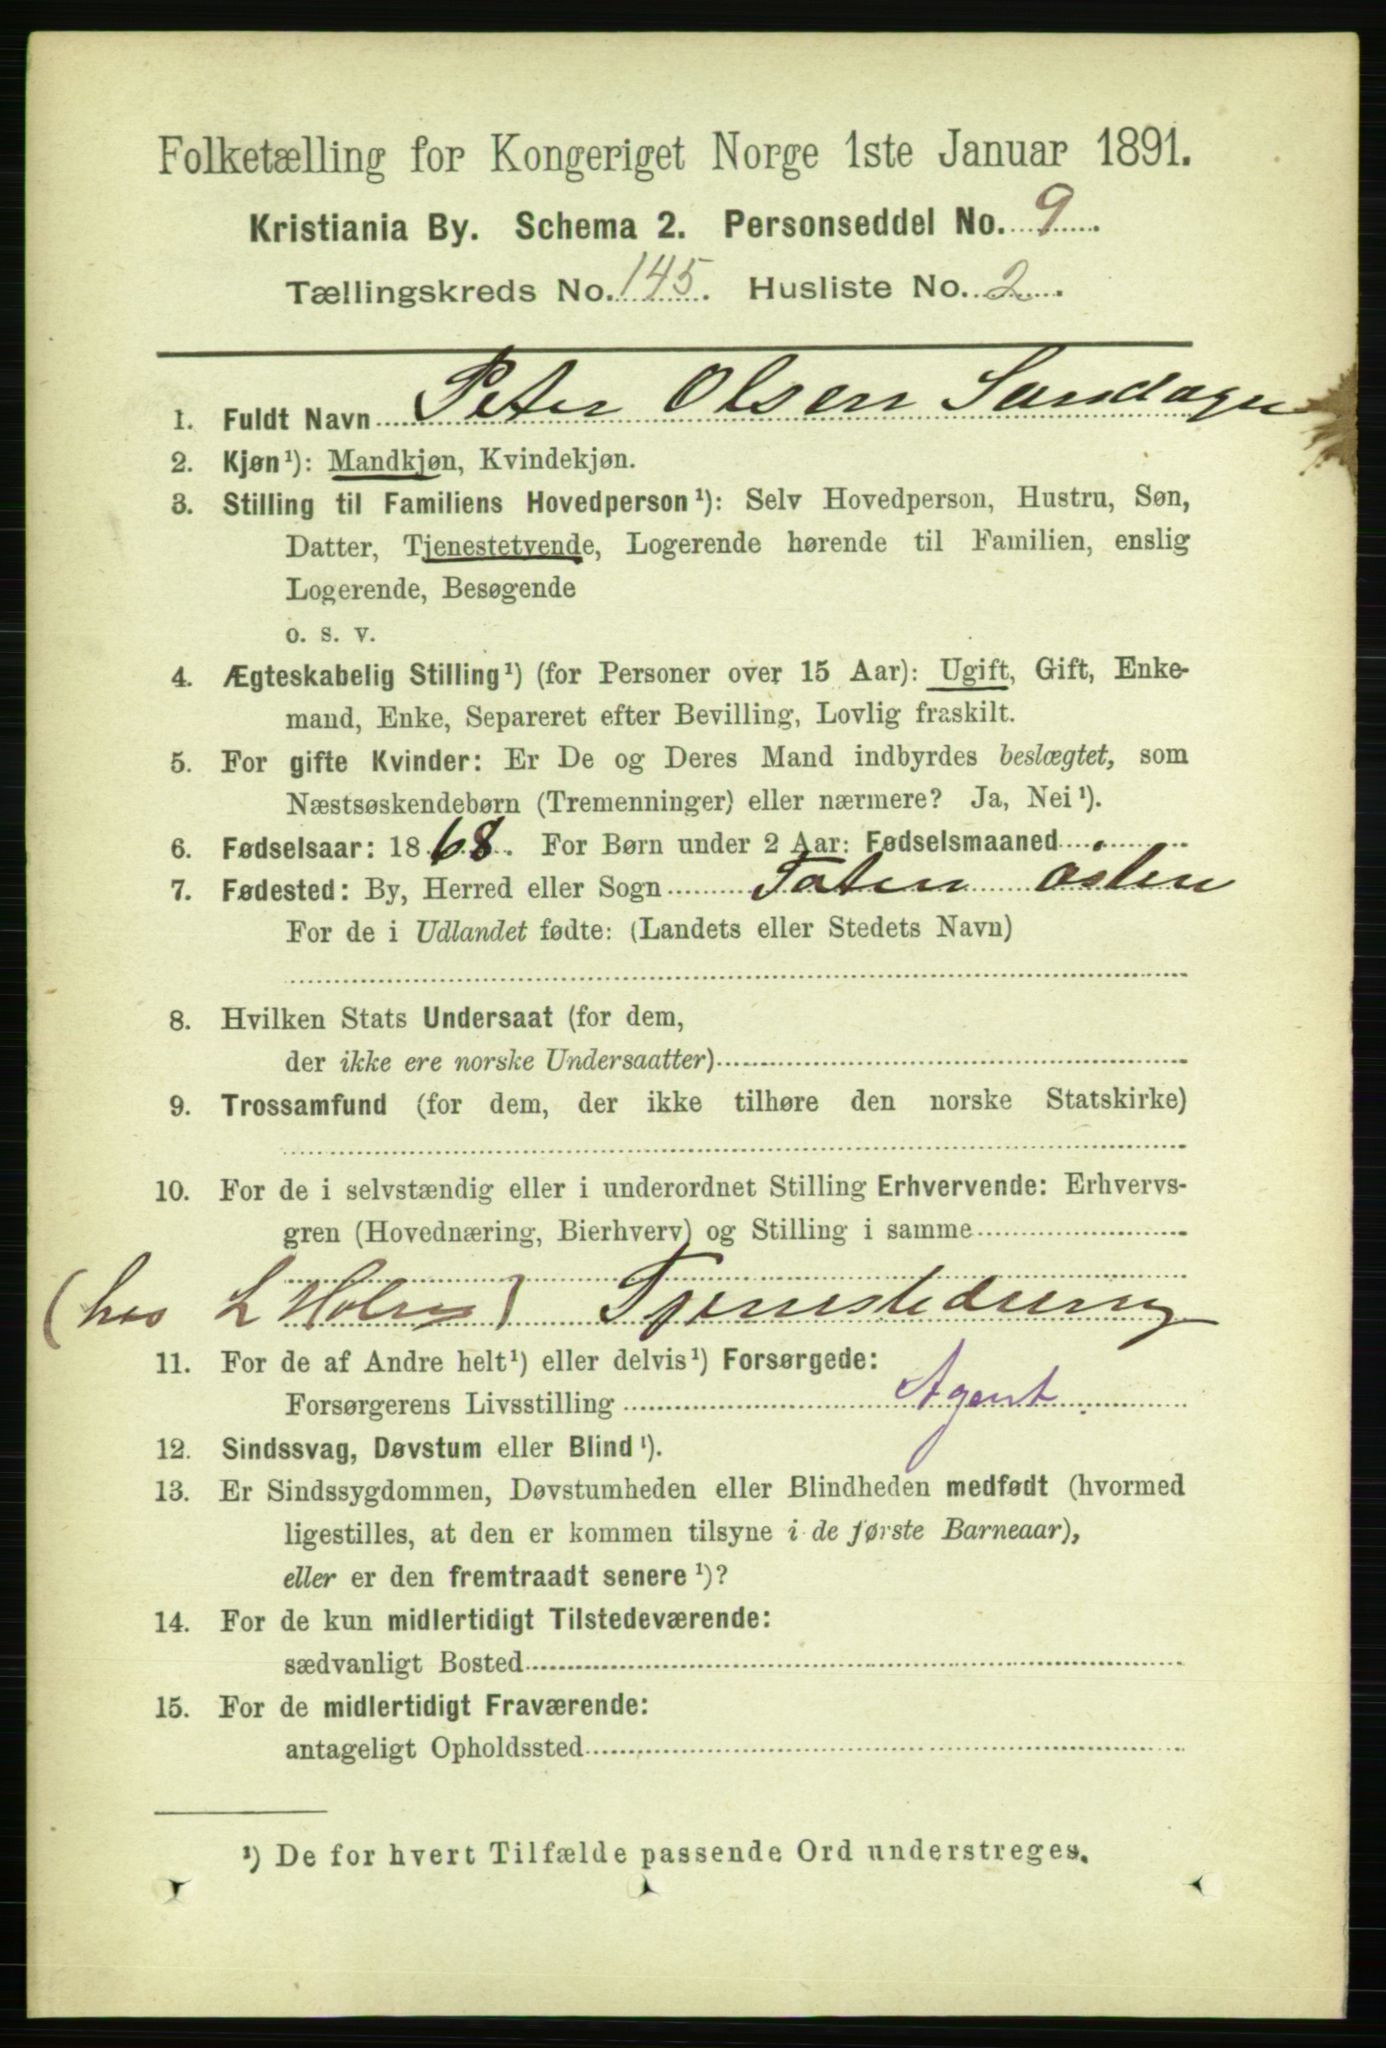 Folketælling for Kongeriget Norge 1ste Januar 1891.
Kristiania By. Schema 2. Personseddel No. 9
Tællingskreds No. 145. Husliste No. 2
1. Fuldt Navn Peter Olsen Sandagu
2. Kjøn¹): Mandkjøn, Kvindekjøn.
3. Stilling til Familiens Hovedperson¹): Selv Hovedperson, Hustru, Søn,
Datter, Tjenestetyende, Logerende hørende til Familien, enslig
Logerende, Besøgende
o. s. v.
4. Ægteskabelig Stilling¹) (for Personer over 15 Aar): Ugift, Gift, Enke-
mand, Enke, Separeret efter Bevilling, Lovlig fraskilt.
5. For gifte Kvinder: Er De og Deres Mand indbyrdes beslægtet, som
Næstsøskendebørn (Tremenninger) eller nærmere? Ja, Nei¹).
6. Fødselsaar: 1868. For Børn under 2 Aar: Fødselsmaaned
7. Fødested: By, Herred eller Sogn Toten östen
For de i Udlandet fødte: (Landets eller Stedets Navn)
8. Hvilken Stats Undersaat (for dem,
der ikke ere norske Undersaatter)
9. Trossamfund (for dem, der ikke tilhøre den norske Statskirke)
10. For de i selvstændig eller i underordnet Stilling Erhvervende: Erhvervs-
gren (Hovednæring, Bierhverv) og Stilling i samme
(hos L Holms) Tjenestedreng
11. For de af Andre helt¹) eller delvis¹) Forsørgede:
Forsørgerens Livsstilling Agent
12. Sindssvag, Døvstum eller Blind¹).
13. Er Sindssygdommen, Døvstumheden eller Blindheden medfødt (hvormed
ligestilles, at den er kommen tilsyne i de første Barneaar),
eller er den fremtraadt senere¹)?
14. For de kun midlertidigt Tilstedeværende:
sædvanligt Bosted
15. For de midlertidigt Fraværende:
antageligt Opholdssted
¹) De for hvert Tilfælde passende Ord understreges.